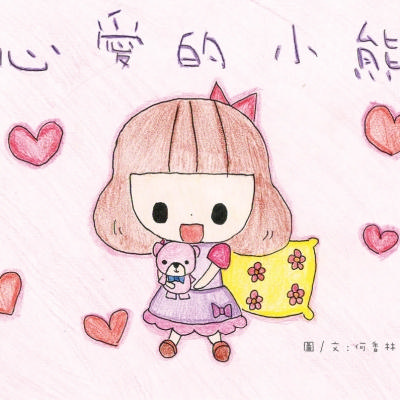 心愛的小熊
圖/文:何香林